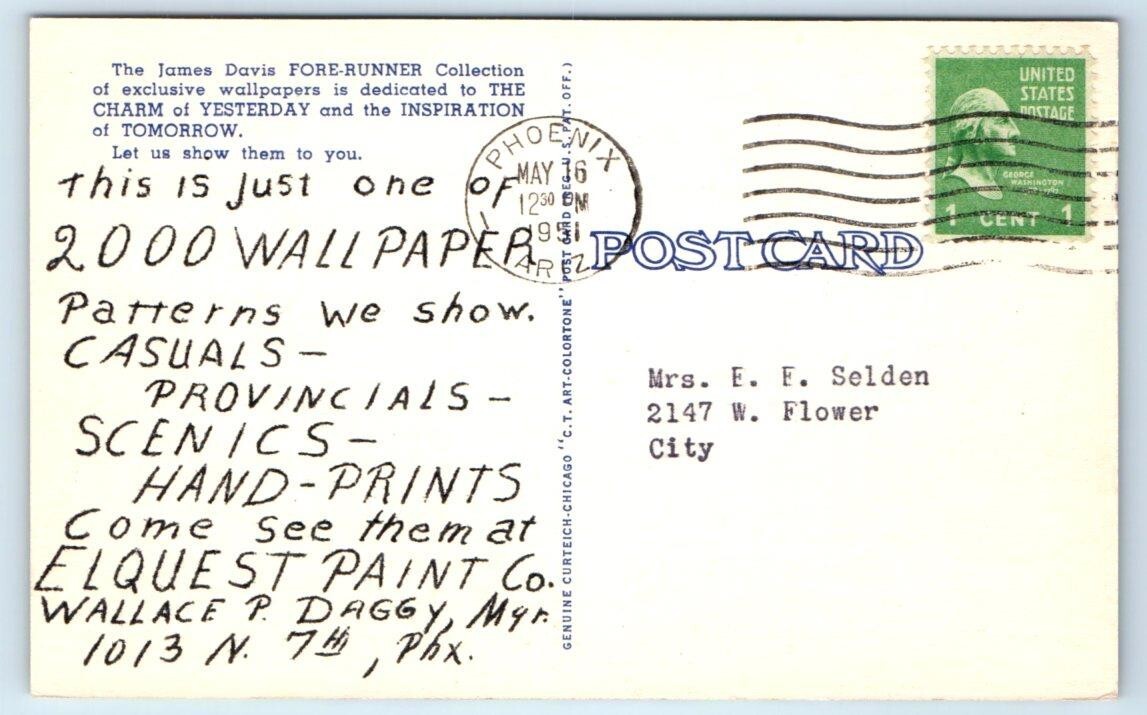 The James Davis FORE-RUNNER Collection
of exclusive wallpapers is dedicated to THE
CHARM of YESTERDAY and the INSPIRATION
of TOMORROW.
Let us show them to you.
This is just one of
2000 WALLPAPER
Patterns we show.
CASUALS –
PROVINCIALS –
SCENICS –
HAND-PRINTS
Come see them at
ELQUEST PAINT Co.
WALLACE P. DAGGY, Mgr.
1013 N. 7th, Phx.
GENUINE CURTEICH-CHICAGO "C.T. ART-COLORTONE" POST CARD (REG. U.S. PAT. OFF.)
PHOENIX
MAY 16
12 30 PM
1951
ARIZ.
POST CARD
UNITED
STATES
POSTAGE
GEORGE
WASHINGTON
1 CENT 1
Mrs. E. E. Selden
2147 W. Flower
City